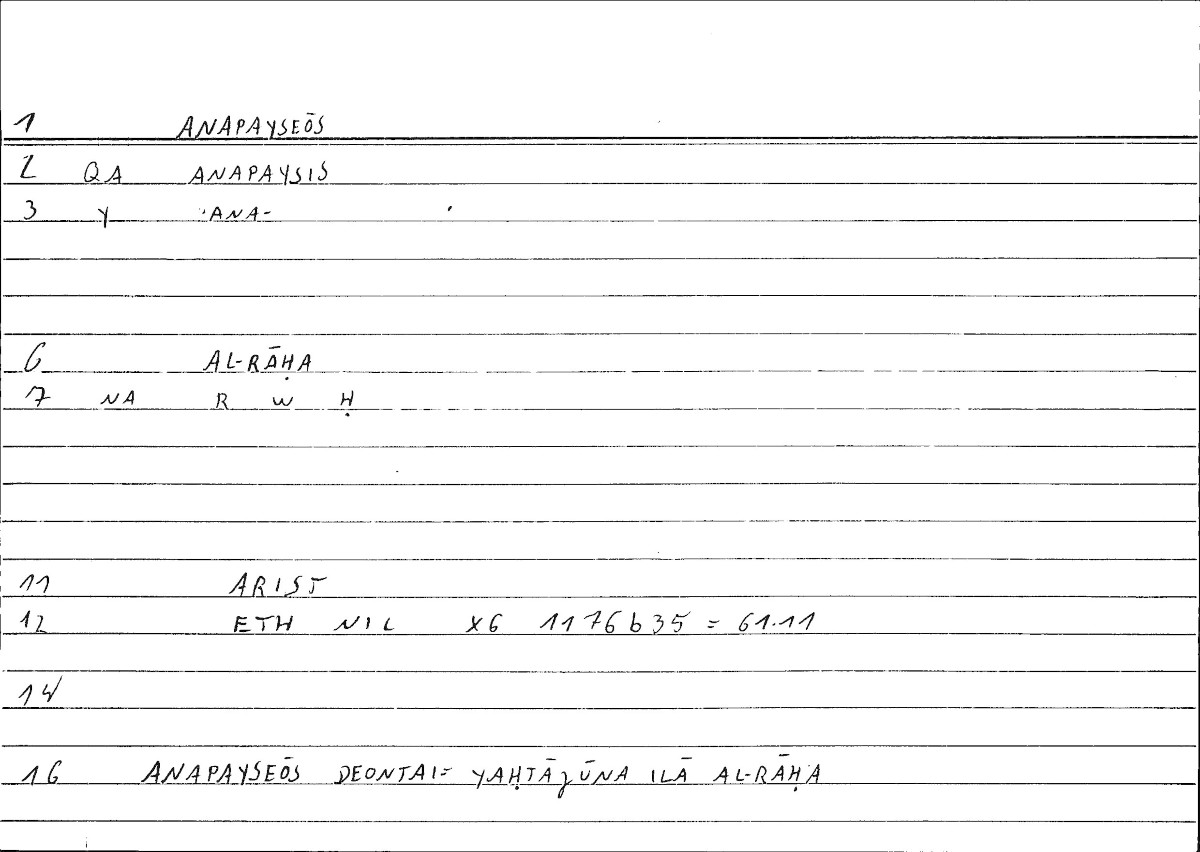 1 ANAPAYSEŌS
2 QA ANAPAYSIS
3 Y ANA-
6 AL-RĀḤA
7 NA R W Ḥ
11 ARIST
12 ETH NIC X6 1176b35 = 61.11
14
16 ANAPAYSEŌS DEONTAI= YAḤTĀJŪNA ILĀ AL-RĀḤA